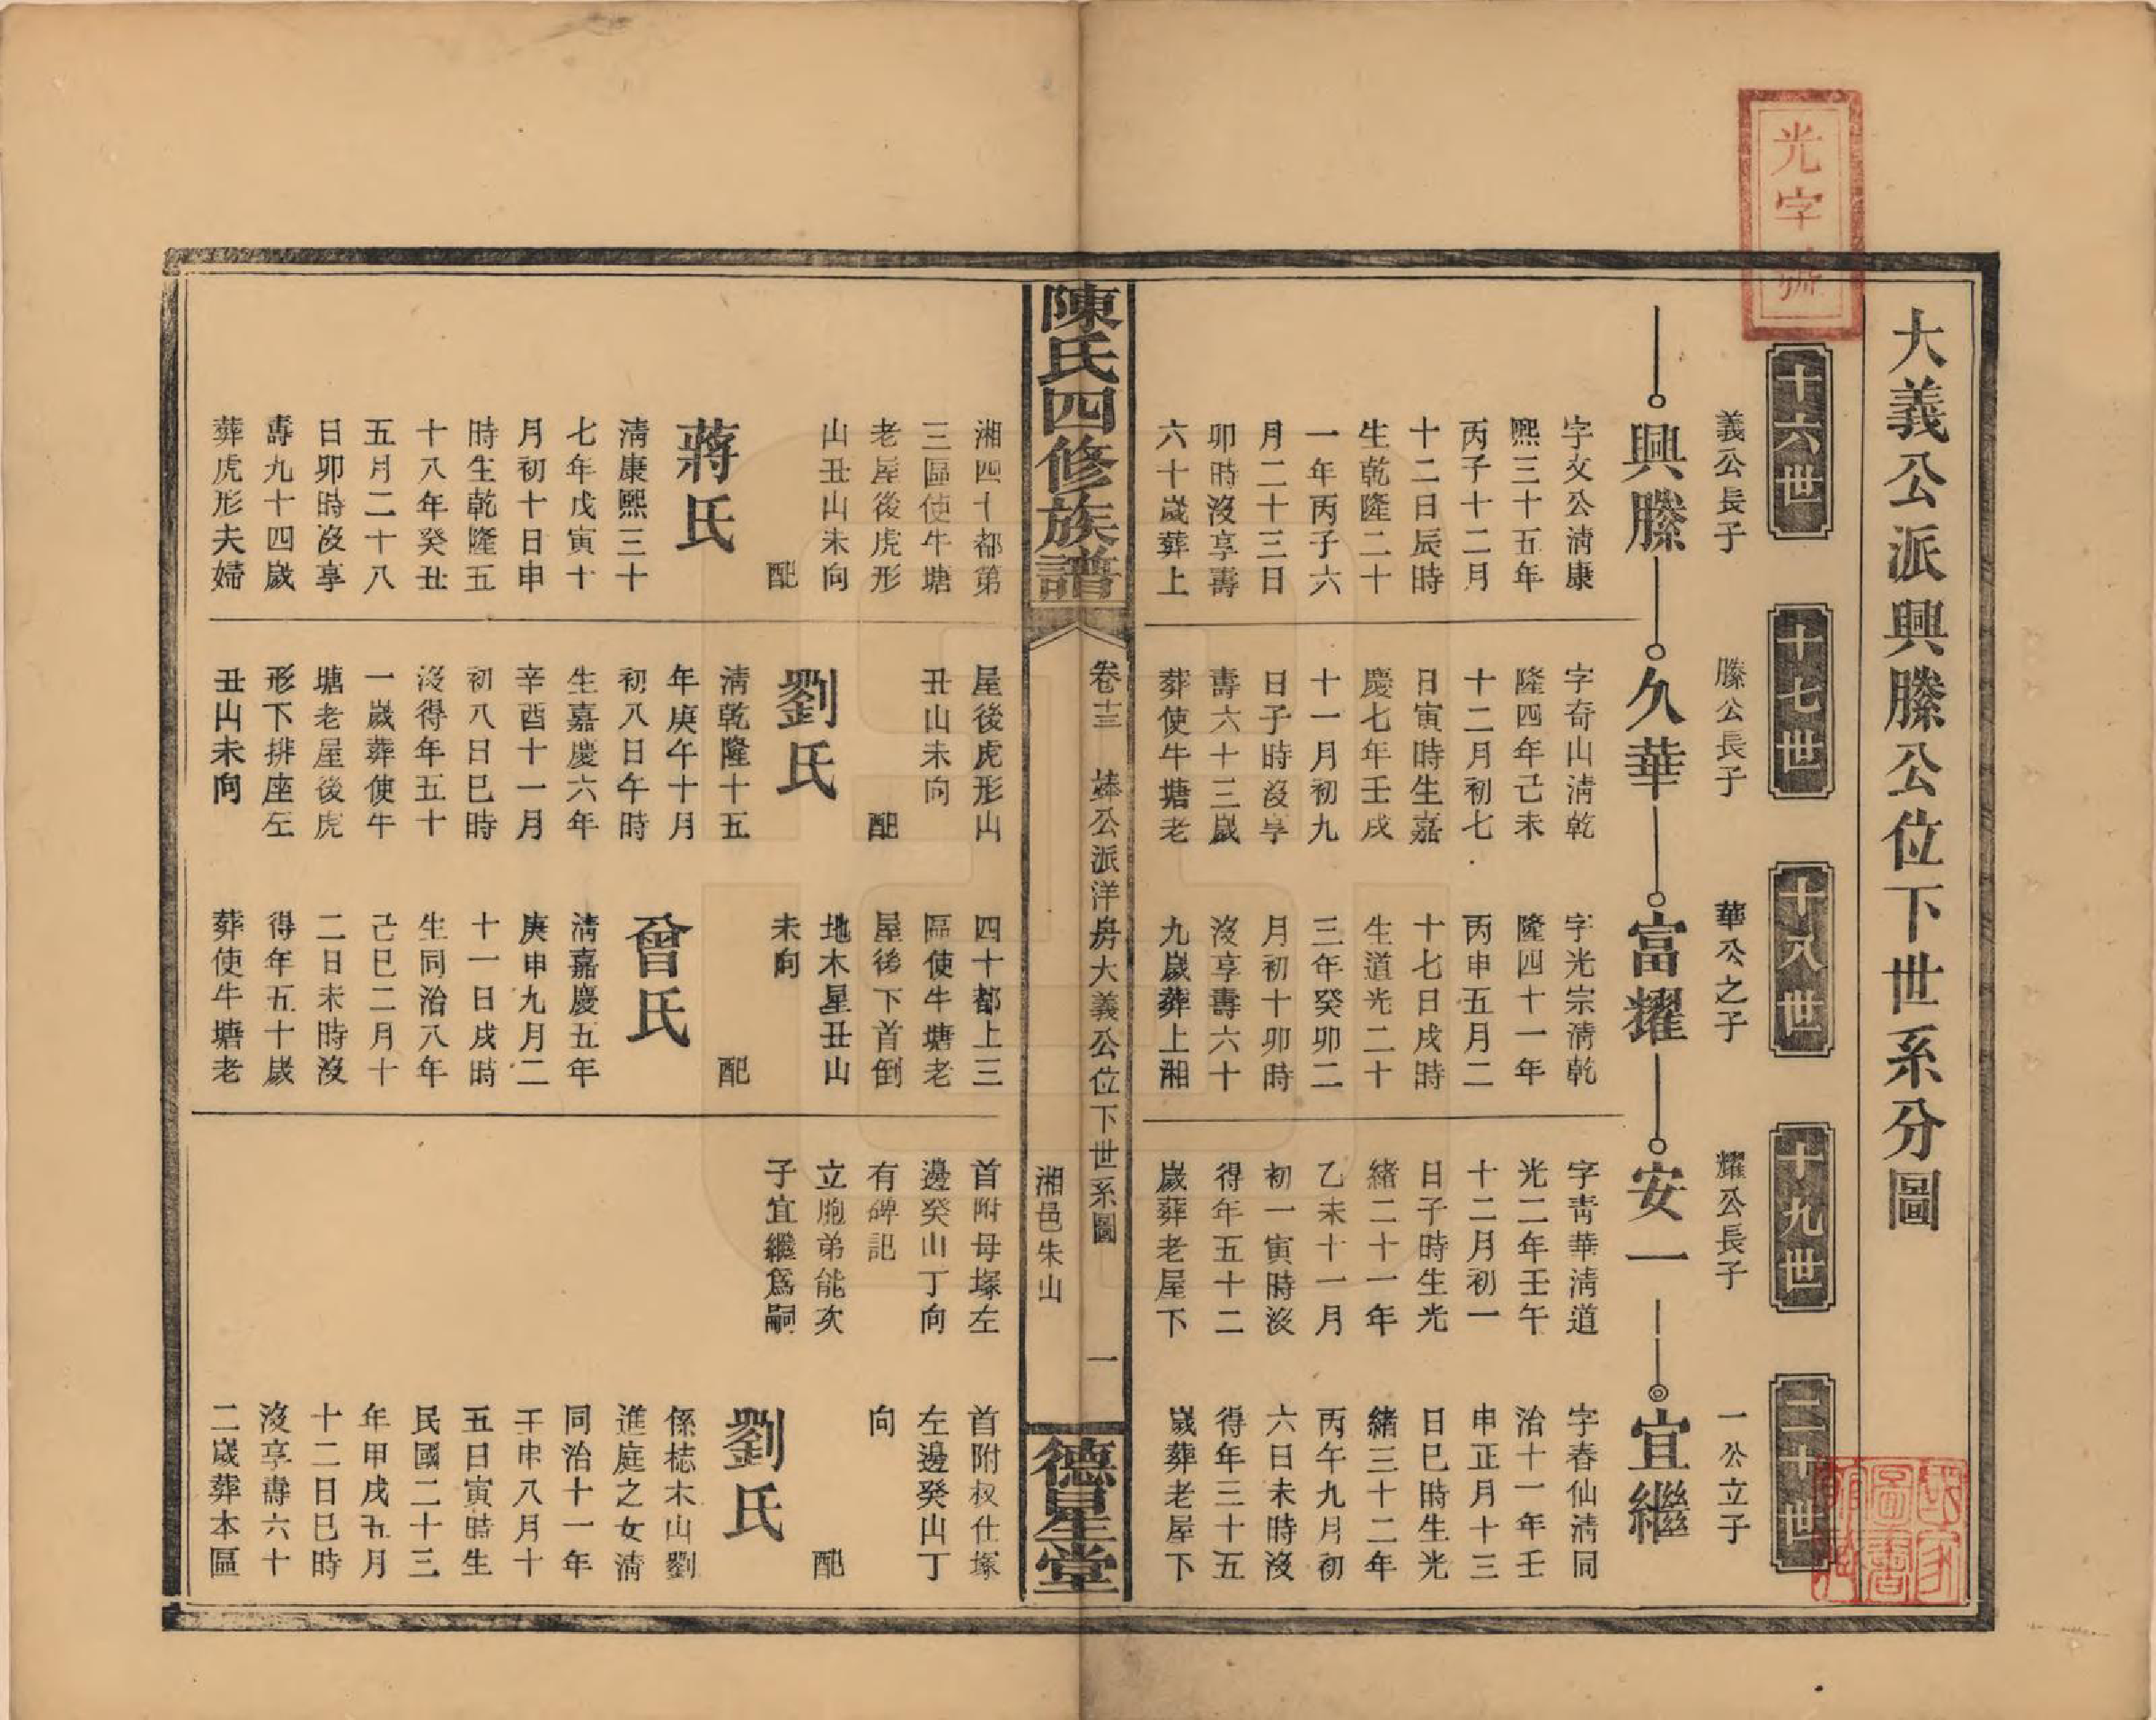 大義公派興滕公位下世系分圖
光字號
十六世
十七世
十八世
十九世
二十世
義公長子
興滕
字文公淸康
熙三十五年
丙子十二月
十二日辰時
生乾隆二十
一年丙子六
月二十三日
卯時沒享壽
六十歲葬上
湘四十都第
三區使牛塘
老屋後虎形
山丑山未向
配
蔣氏
淸康熙三十
七年戊寅十
月初十日申
時生乾隆五
十八年癸丑
五月二十八
日卯時沒享
壽九十四歲
葬虎形夫婦
滕公長子
久華
字奇山淸乾
隆四年己未
十二月初七
日寅時生嘉
慶七年壬戌
十一月初九
日子時沒享
壽六十三歲
葬使牛塘老
屋後虎形山
丑山未向
配
劉氏
淸乾隆十五
年庚午十月
初八日午時
生嘉慶六年
辛酉十一月
初八日巳時
沒得年五十
一歲葬使牛
塘老屋後虎
形下排座左
丑山未向
華公之子
富耀
字光宗淸乾
隆四十一年
丙申五月二
十七日戌時
生道光二十
三年癸卯二
月初十卯時
沒享壽六十
九歲葬上湘
四十都上三
區使牛塘老
屋後下首倒
地木星丑山
未向
配
曾氏
淸嘉慶五年
庚申九月二
十一日戌時
生同治八年
己巳二月十
二日未時沒
得年五十歲
葬使牛塘老
耀公長子
安一
字靑華淸道
光二年壬午
十二月初一
日子時生光
緒二十一年
乙未十一月
初一寅時沒
得年五十二
歲葬老屋下
首附母塚左
邊癸山丁向
有碑記
立胞弟能次
子宜繼爲嗣
一公立子
宜繼
字春仙淸同
治十一年壬
申正月十三
日巳時生光
緒三十二年
丙午九月初
六日未時沒
得年三十五
歲葬老屋下
首附叔仕塚
左邊癸山丁
向
配
劉氏
係梽木山劉
進庭之女淸
同治十一年
壬申八月十
五日寅時生
民國二十三
年甲戌五月
十二日巳時
沒享壽六十
二歲葬本區
陳氏四修族譜
卷十三
公派洋房大義公位下世系圖
一
湘邑朱山
德星堂